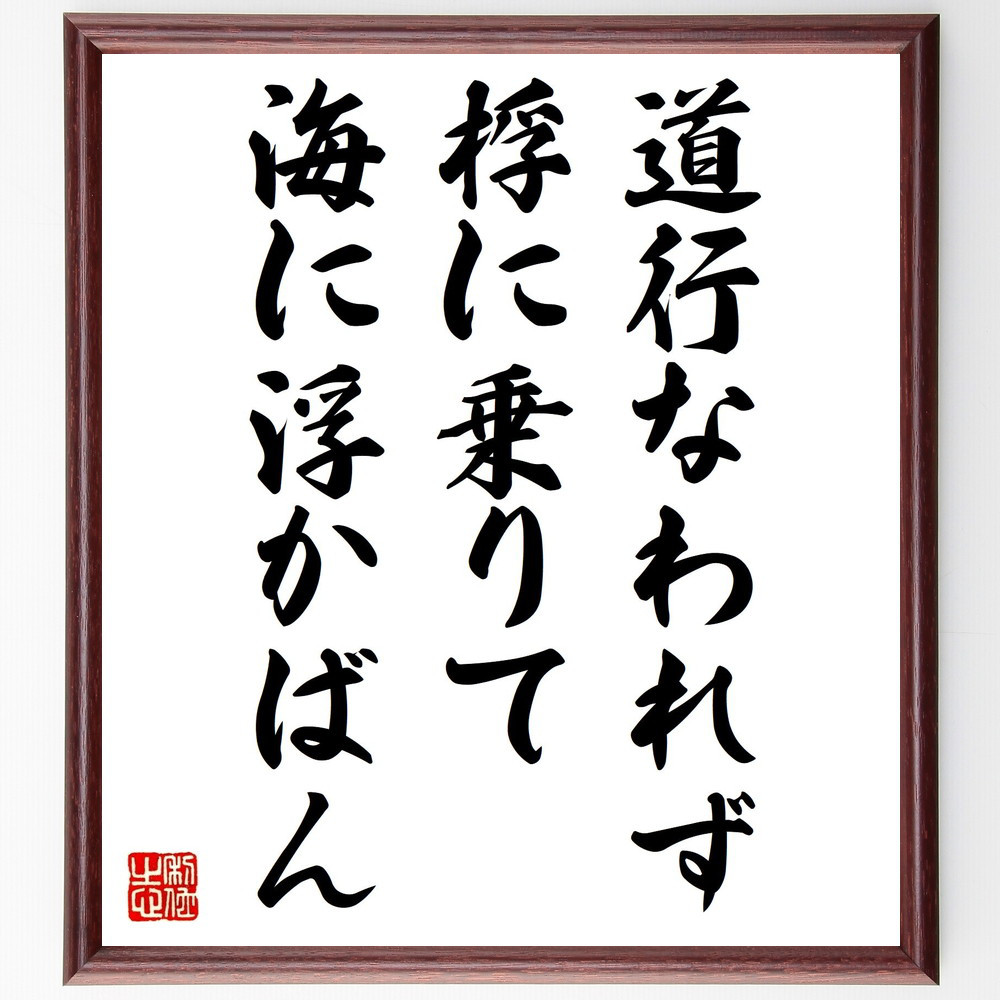 道行なわれず
桴に乗りて
海に浮かばん